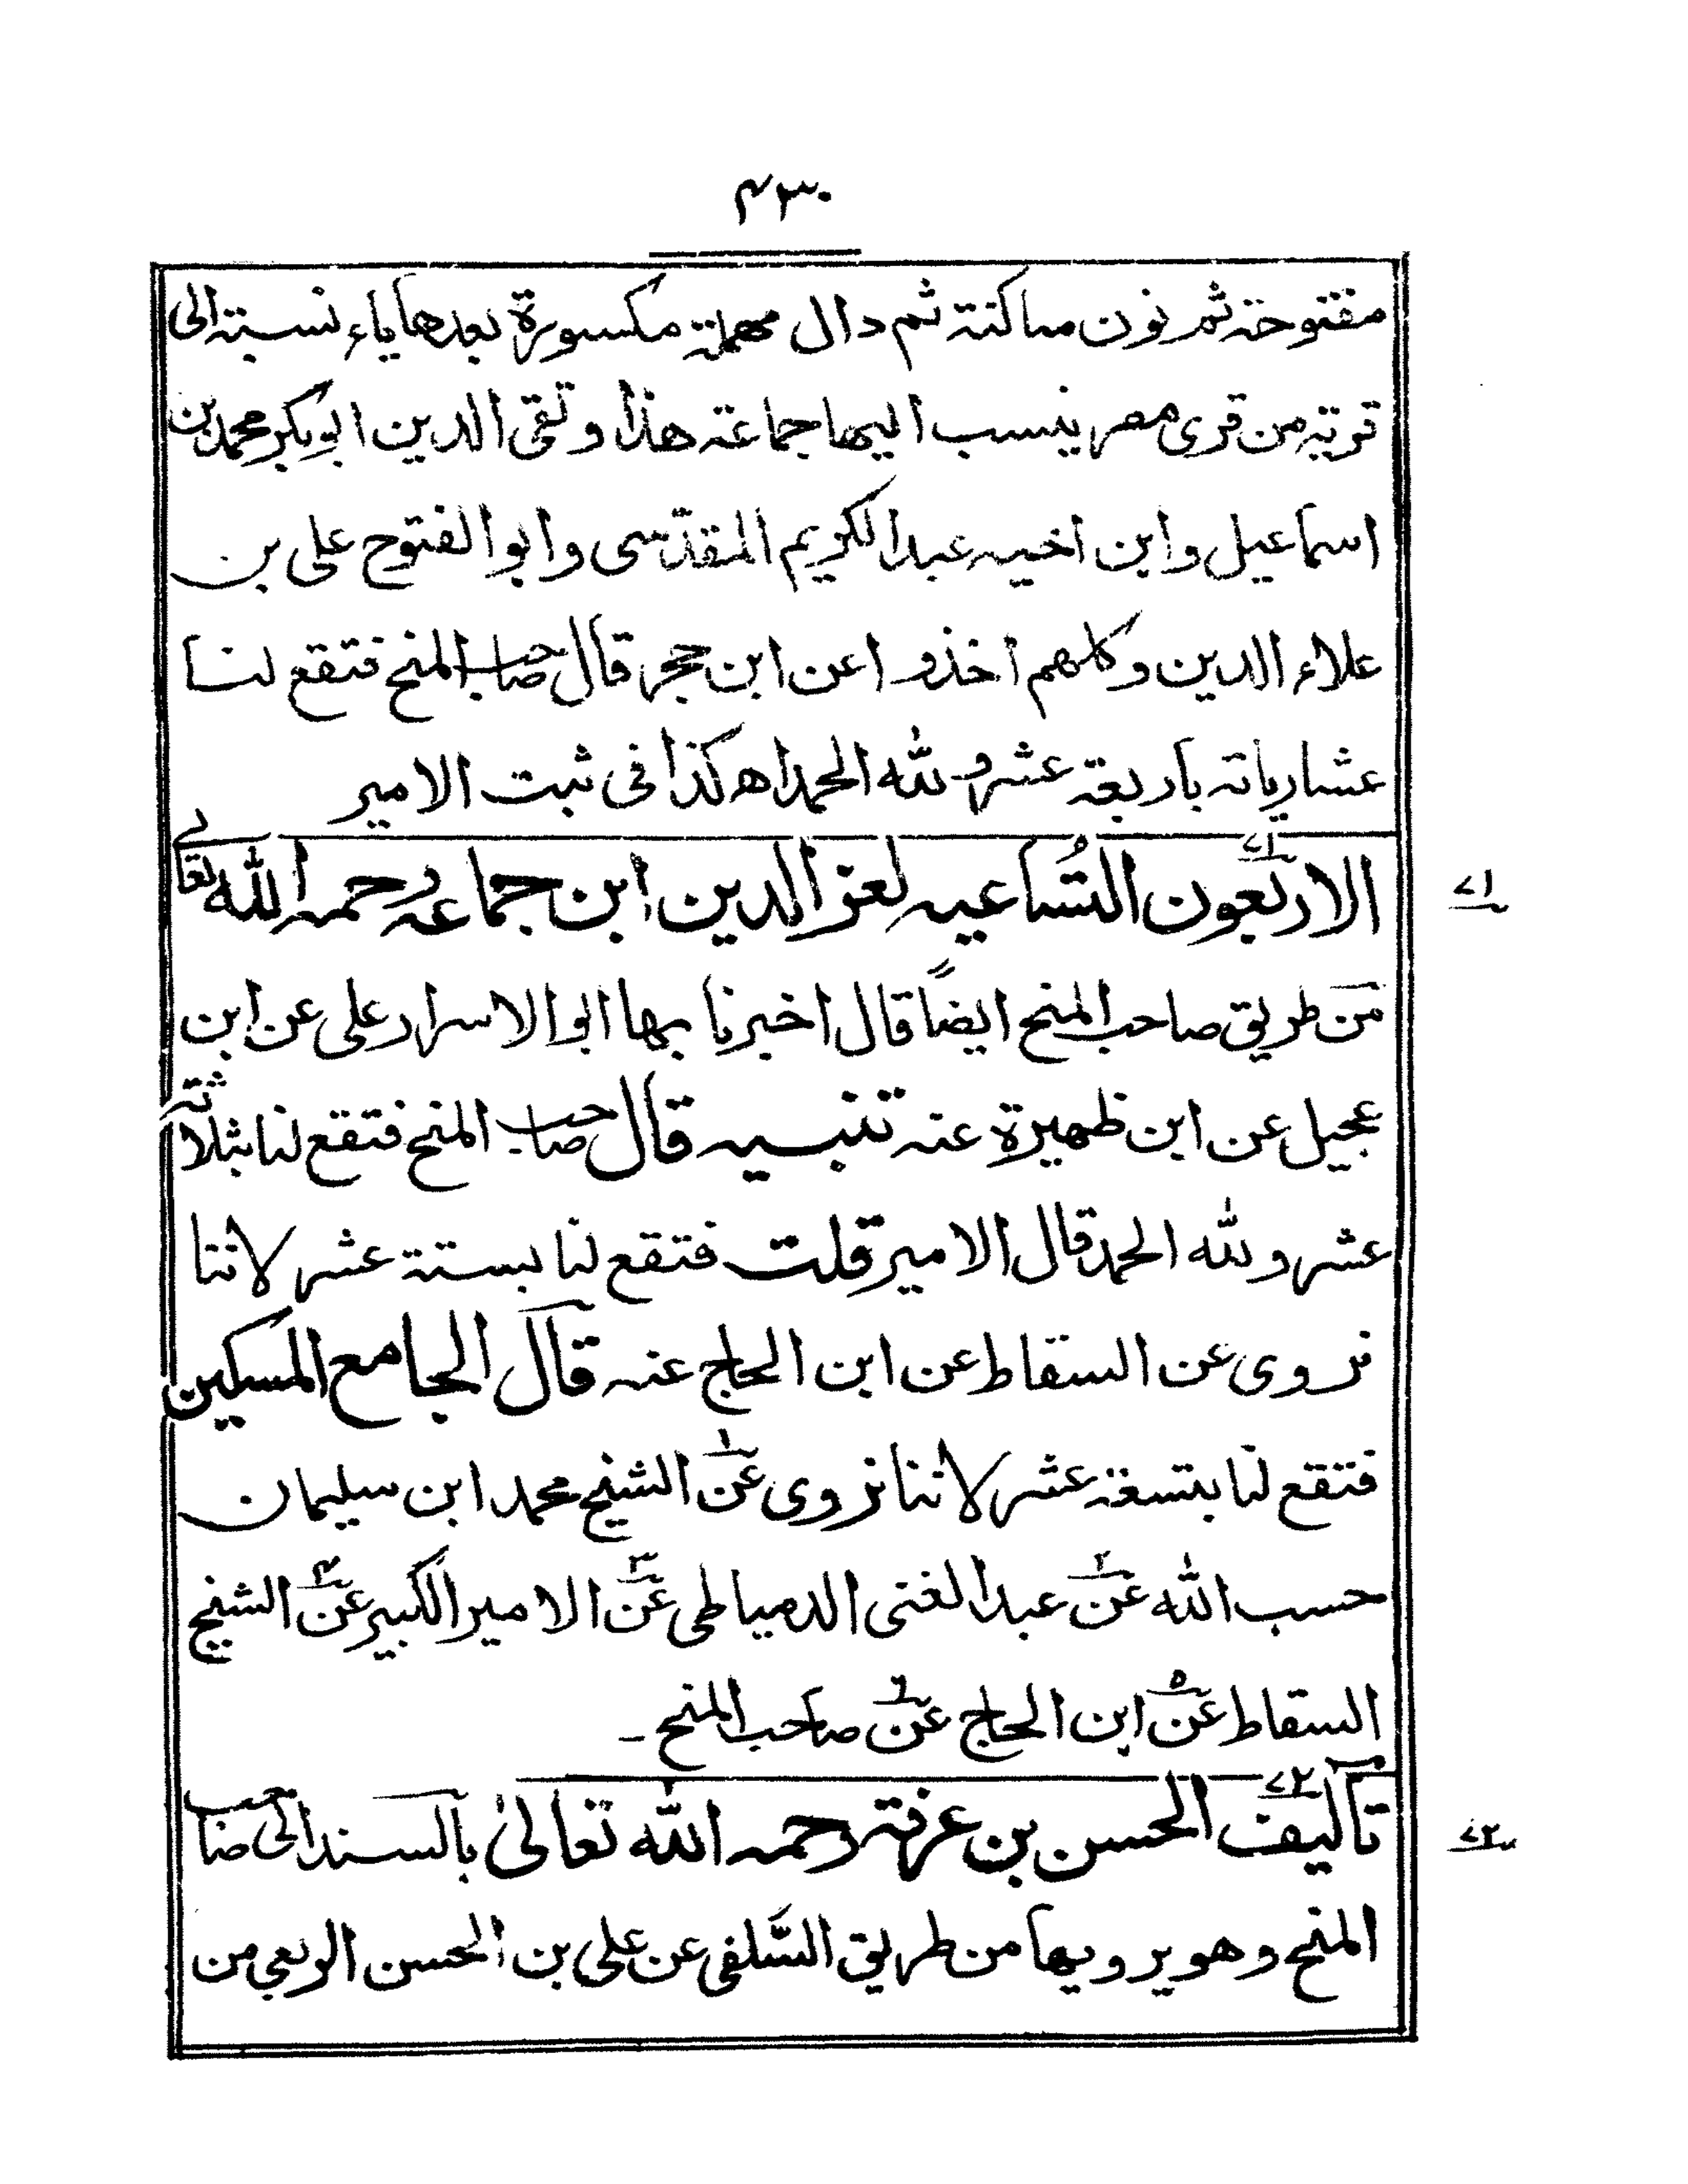 ۴۳۰
مفتوحة ثم نون ساكنة ثم دال مهملة مكسورة بعدها ياء نسبته الى
قرية من قرى مصر ينسب اليها جماعة هذا وتقى الدين ابوبكر محمد بن
اسماعيل وابن اخيه عبدالكريم المقدّسى وابو الفتوح على بن
علاء الدين وكلهم اخذوا عن ابن حجر قال صاحب المنح فتقع لنا
عشارياته باربعة عشر و لله الحمد اه كذا فى ثبت الامير
۷۱
الاربعون التُساعيه لعز الدين ابن جماعه رحمه الله تعالے
۷۱
من طريق صاحب المنح ايضاً قال اخبرنا بها ابو الاسرار على عن ابن
عجيل عن ابن ظهيرة عنه تنبيه قال صاحب المنح فتقع لنا بثلاثة
عشر ولله الحمد قال الامير قلت فتقع لنا بستة عشر لاننا
نروى عن السقاط عن ابن الحاج عنه قال الجامع المسكين
فتقع لنا بتسعة عشر لاننا نروى عن۱ الشيخ محمد ابن سليمان
حسب الله عن۲ عبدالغنى الدمياطى عن۳ الامير الكبير عن۴ الشيخ
السقاط عن۵ ابن الحاج عن۶ صاحب المنح ـ
۷۲
تأليف الحسن بن عرفة رحمه الله تعالىٰ بالسند الى صاحب
۷۲
المنح وهو يرويها من طريق السَّلفى عن على بن الحسن الربعي من